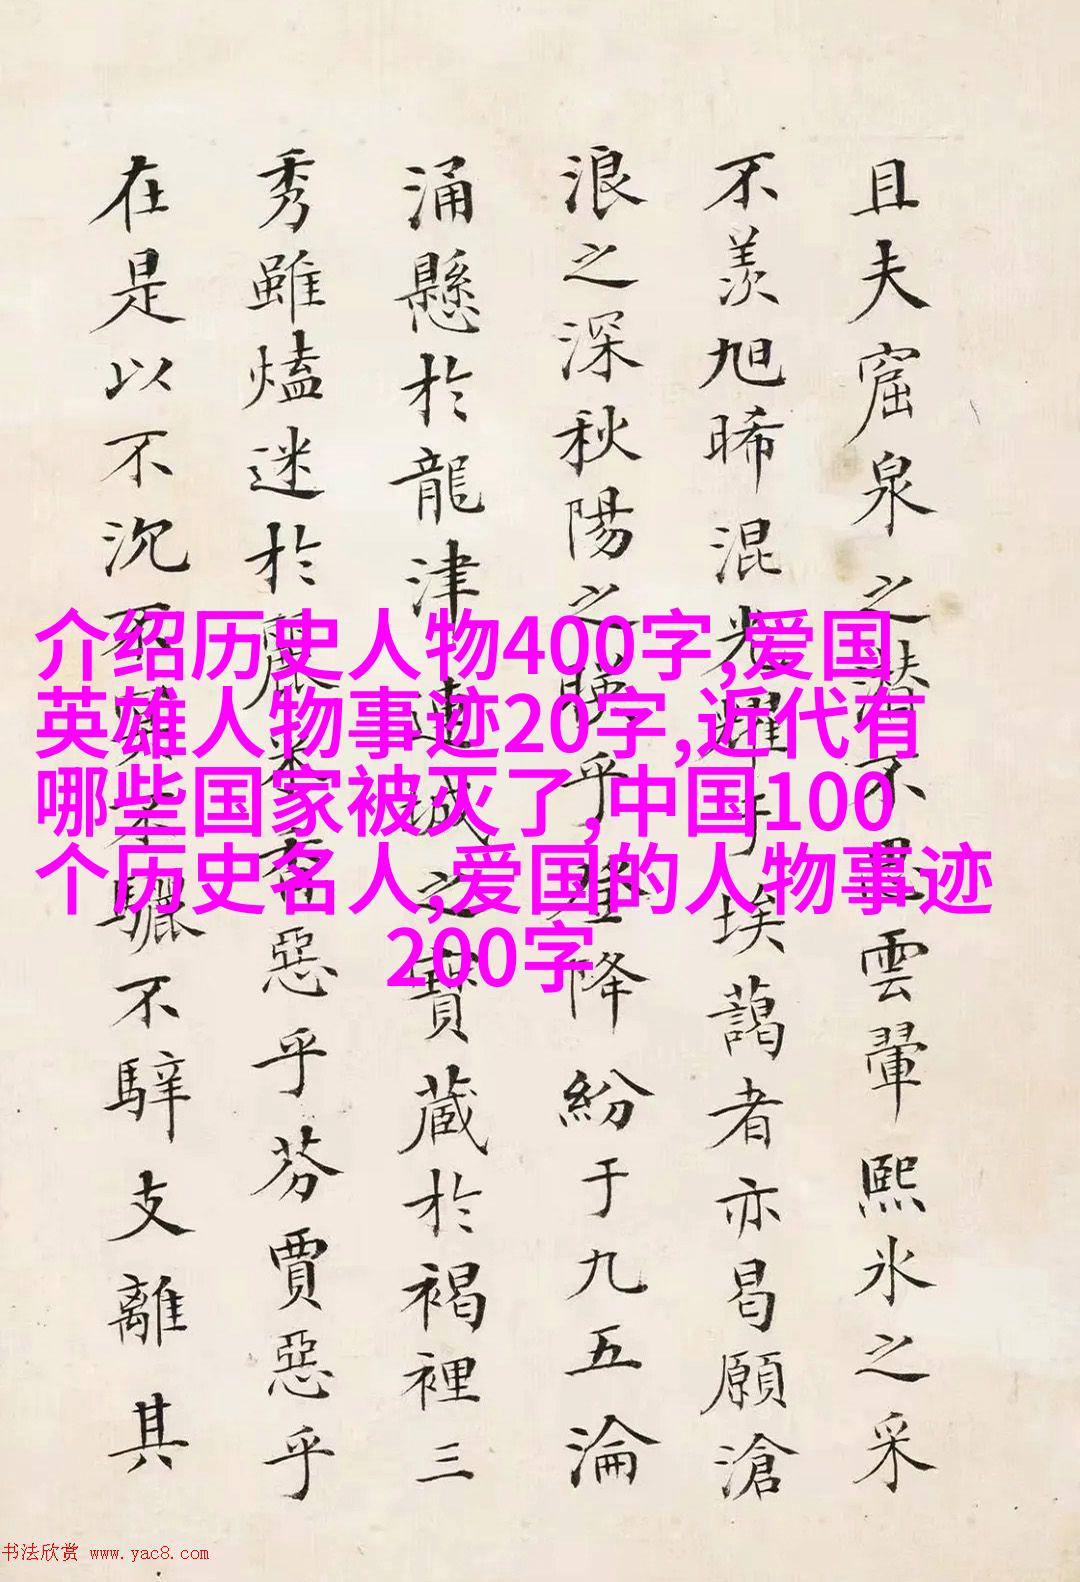 且夫窟泉之潜不思雲翬熙氷之采
不羨旭晞混光耀于埃藹者亦曷願滄
浪之深秋陽之暎乎登降紛于九五淪
涌懸於龍津連城之寶藏於褐裡三
秀雖熆迷於麗采夯惡乎芬賈惡乎
在是以不沉不驪不騂支離其
介绍历史人物400字,爱国
英雄人物事迹20字,近代有
哪些国家被灭了,中国100
个历史名人,爱国的人物事迹
200字
书法欣赏 www.yac8.com